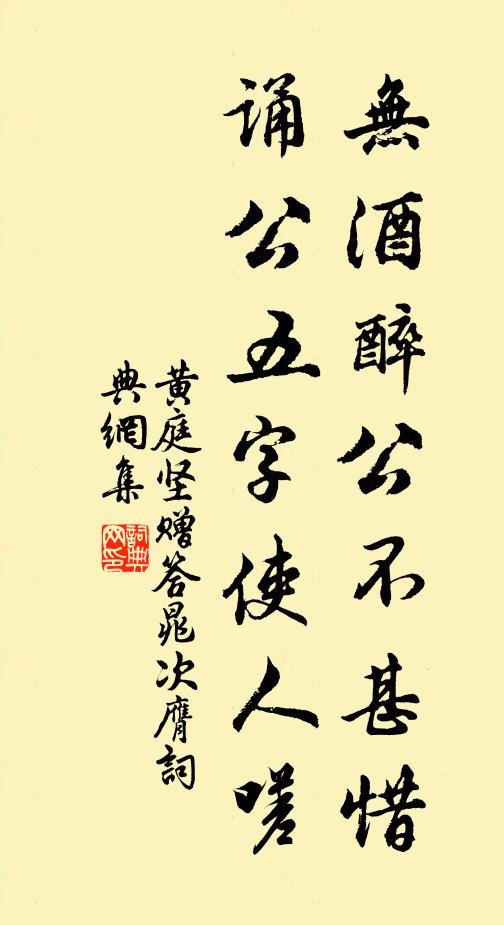 無酒醉公不甚惜
誦公五字使人嗟
黄庭坚赠答晁次膺詞
典網集
詞典網印